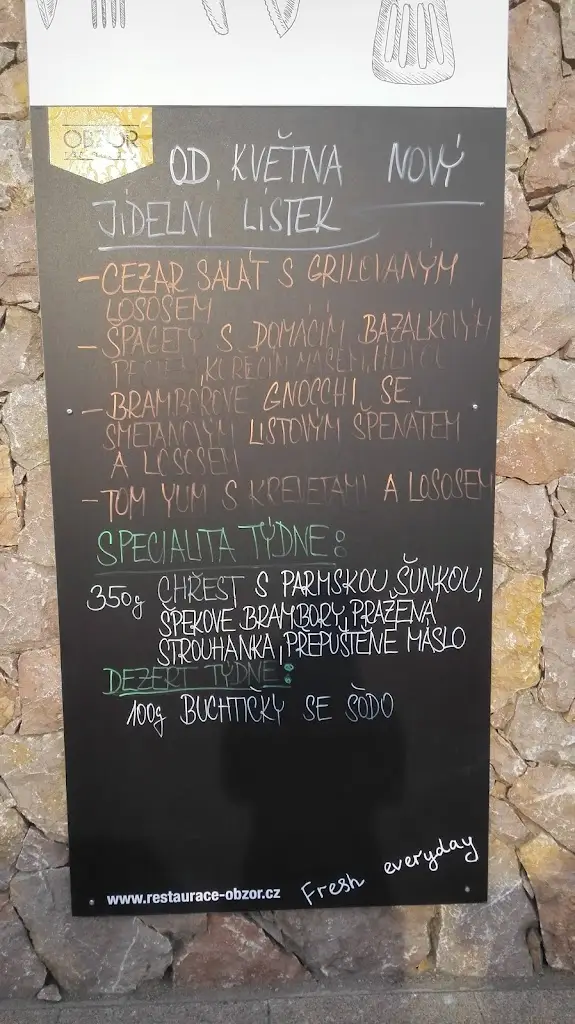 OBZOR
OD KVĚTNA NOVÝ
JÍDELNÍ LÍSTEK
- CEZAR SALÁT S GRILOVANÝM
LOSOSEM
- ŠPAGETY S DOMÁCÍM BAZALKOVÝM
PESTEM, KUŘECÍM MASEM,
- BRAMBOROVÉ GNOCCHI SE
SMETANOVÝM LISTOVÝM ŠPENÁTEM
A LOSOSEM
- TOM YUM S KREVETAMI A LOSOSEM
SPECIALITA TÝDNE:
350g CHŘEST S PARMSKOU ŠUNKOU,
ŠPEKOVÉ BRAMBORY, PRAŽENÁ
STROUHANKA, PŘEPUŠTĚNÉ MÁSLO
DEZERT TÝDNE:
100g BUCHTIČKY SE ŠODO
Fresh everyday
www.restaurace-obzor.cz